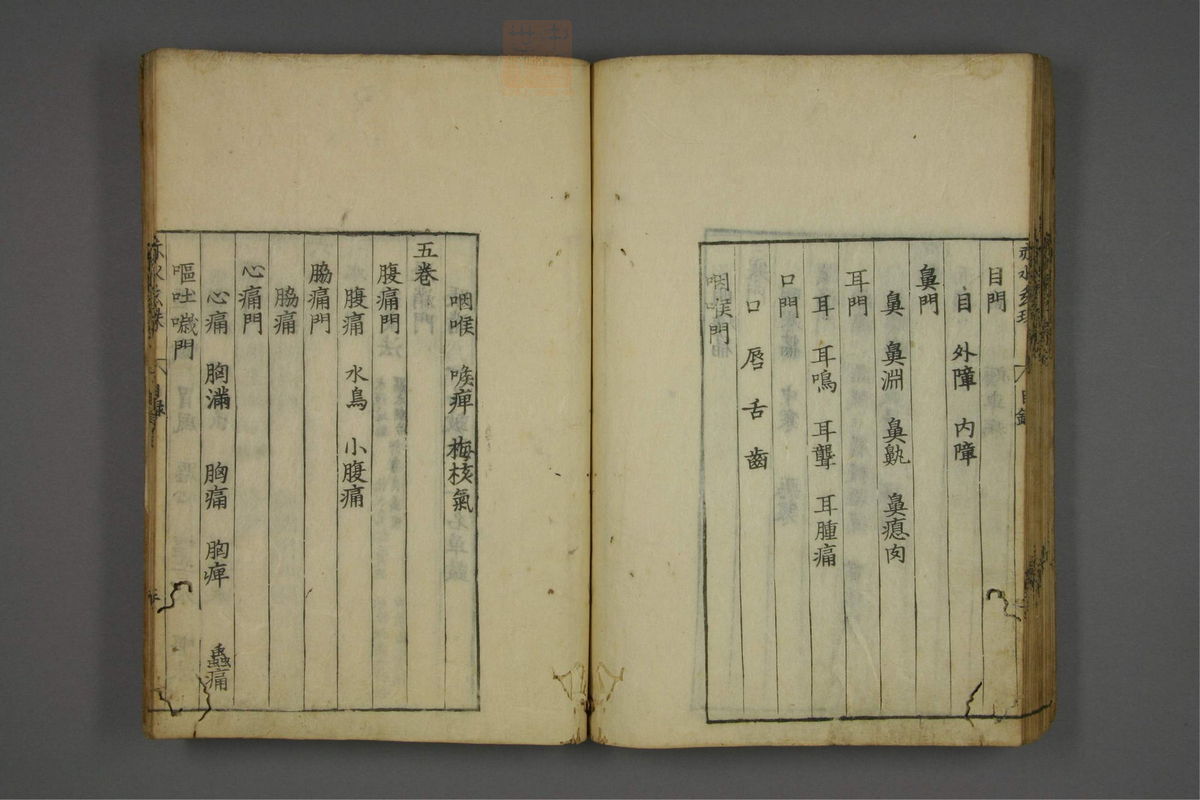 赤水玄珠 目錄
目門
目 外障 內障
鼻門
鼻 鼻淵 鼻鼽 鼻瘜肉
耳門
耳 耳鳴 耳聾 耳腫痛
口門
口 唇 舌 齒
咽喉門
咽喉 喉痺 梅核氣
五卷
腹痛門
腹痛 水鳥 小腹痛
脇痛門
脇痛
心痛門
心痛 胸滿 胸痛 胸痺 蟲痛
嘔吐噦門
赤水玄珠 目錄